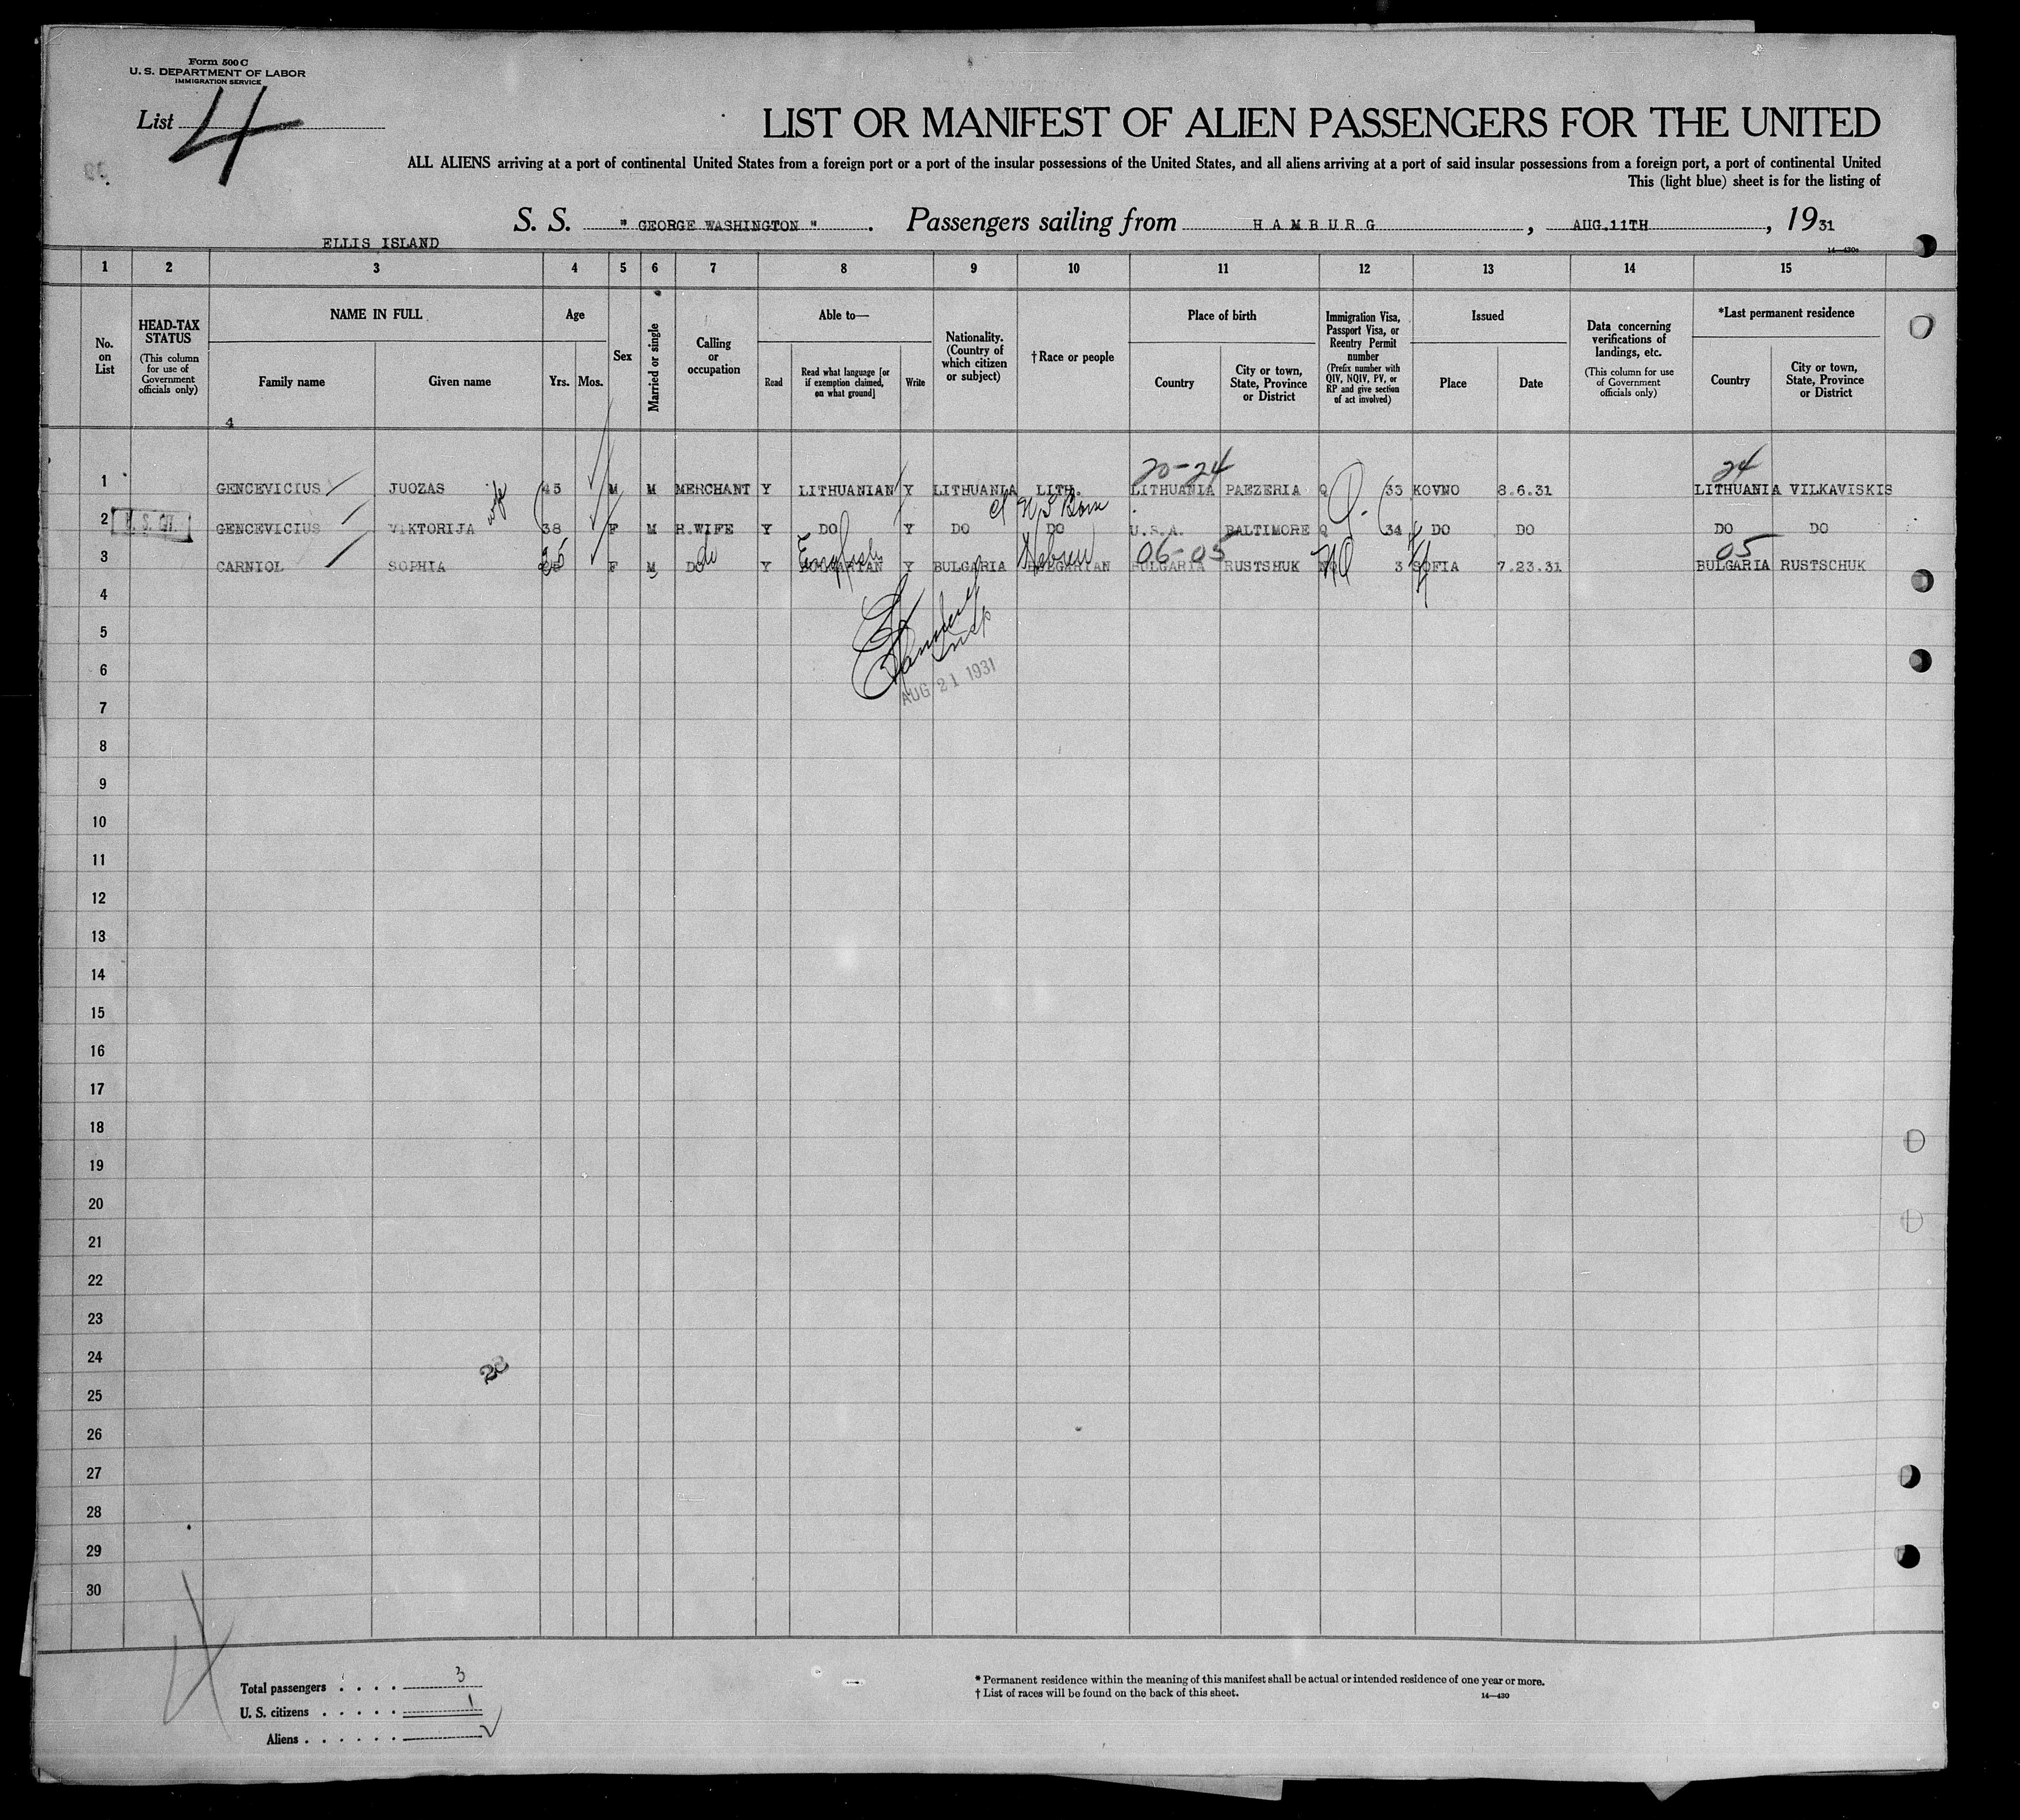 Form 500 C
U. S. DEPARTMENT OF LABOR
IMMIGRATION SERVICE
List 4
LIST OR MANIFEST OF ALIEN PASSENGERS FOR THE UNITED
ALL ALIENS arriving at a port of continental United States from a foreign port or a port of the insular possessions of the United States, and all aliens arriving at a port of said insular possessions from a foreign port, a port of continental United
This (light blue) sheet is for the listing of
S. S. " GEORGE WASHINGTON " . Passengers sailing from HAMBURG , AUG.11TH , 1931
ELLIS ISLAND
14—430a
1 2 3 4 5 6 7 8 9 10 11 12 13 14 15
No. on List
HEAD-TAX STATUS
(This column for use of Government officials only)
NAME IN FULL
Family name Given name
Age
Yrs. Mos.
Sex
Married or single
Calling or occupation
Able to—
Read
Read what language [or if exemption claimed, on what ground]
Write
Nationality. (Country of which citizen or subject)
†Race or people
Place of birth
Country
City or town, State, Province or District
Immigration Visa, Passport Visa, or Reentry Permit number
(Prefix number with QIV, NQIV, PV, or RP and give section of act involved)
Issued
Place Date
Data concerning verifications of landings, etc.
(This column for use of Government officials only)
*Last permanent residence
Country
City or town, State, Province or District
4
20-24 24
1 GENCEVICIUS JUOZAS 45 M M MERCHANT Y LITHUANIAN Y LITHUANIA LITH. LITHUANIA PAEZERIA Q 33 KOVNO 8.6.31 LITHUANIA VILKAVISKIS
wife U S Born Q.
2 GENCEVICIUS VIKTORIJA 38 F M H.WIFE Y DO Y DO DO U.S.A. BALTIMORE Q 34 DO DO DO DO
do English Hebrew 06-05 NQ 05
3 CARNIOL SOPHIA 25 F M DO Y BULGARIAN Y BULGARIA BULGARIAN BULGARIA RUSTSHUK NQ 3 SOFIA 7.23.31 BULGARIA RUSTSCHUK
4
5
6
AUG 21 1931
7
8
9
10
11
12
13
14
15
16
17
18
19
20
21
22
23
24
25
26
27
28
29
30
Total passengers . . . . 3
U. S. citizens . . . . . 1
Aliens . . . . . . 2
* Permanent residence within the meaning of this manifest shall be actual or intended residence of one year or more.
† List of races will be found on the back of this sheet.
14—430